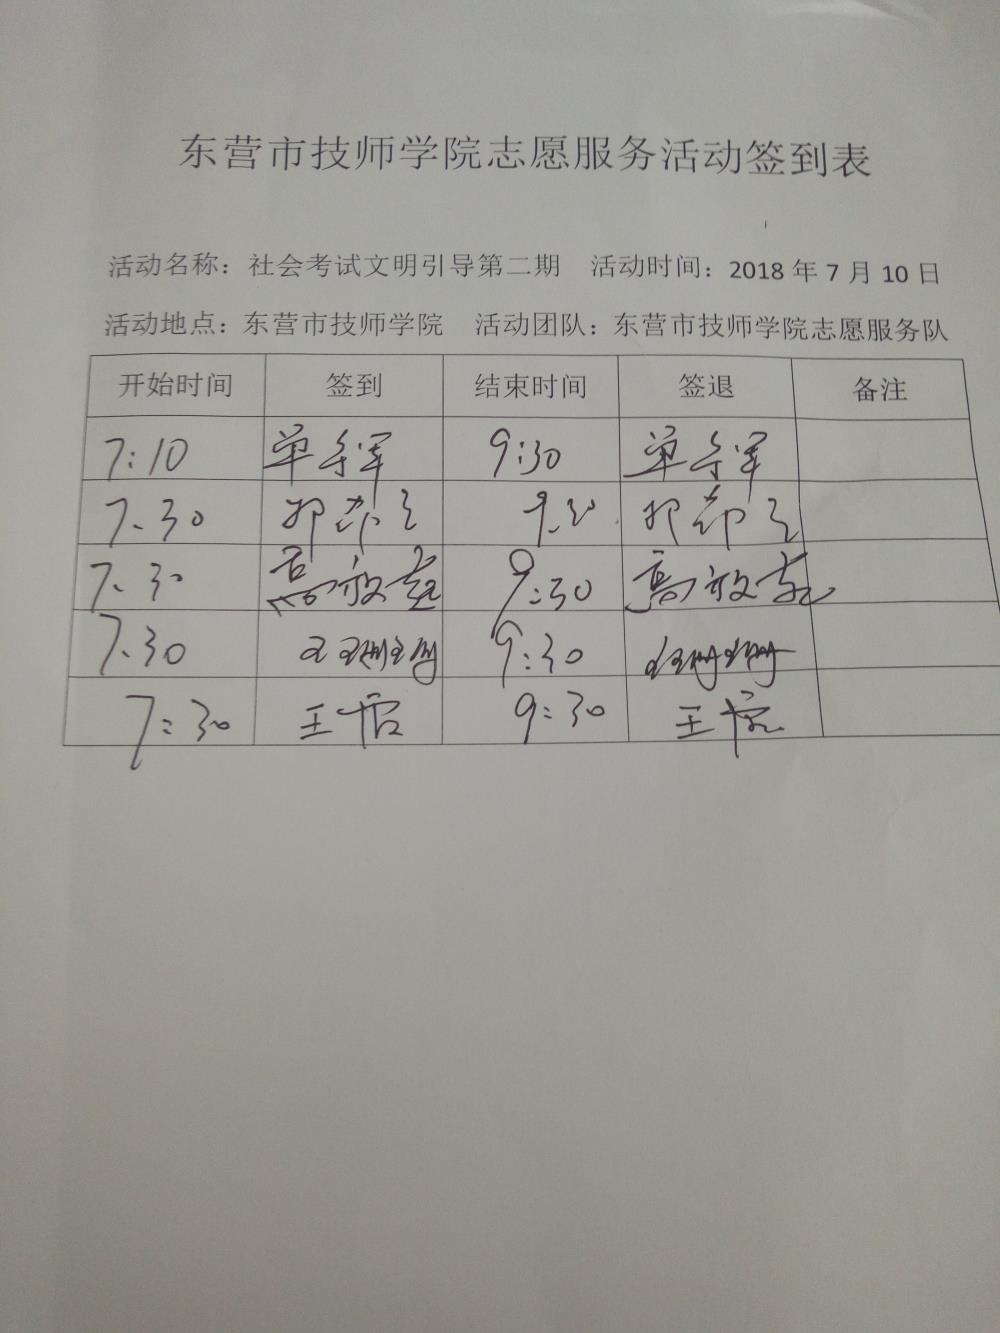 东营市技师学院志愿服务活动签到表
活动名称：社会考试文明引导第二期 活动时间：2018 年 7 月 10 日
活动地点：东营市技师学院 活动团队：东营市技师学院志愿服务队
开始时间 签到 结束时间 签退 备注
7:10 9:30
7.30 9.30
7.30 高 9:30 高
7.30 王珊珊 9:30 王珊珊
7:30 王 9:30 王